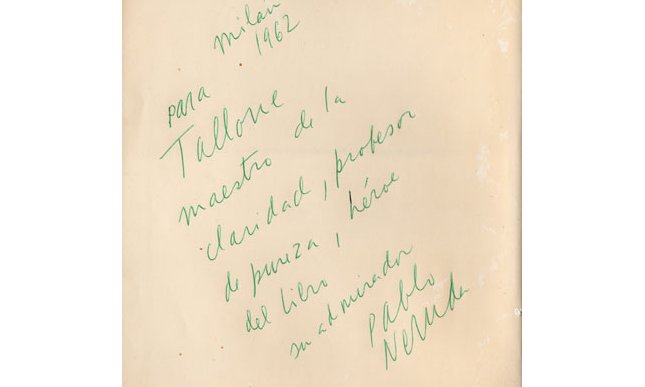 Milán
1962
para
Tallone
maestro de la
claridad, profesor
de pureza, héroe
del libro
su admirador
Pablo
Neruda